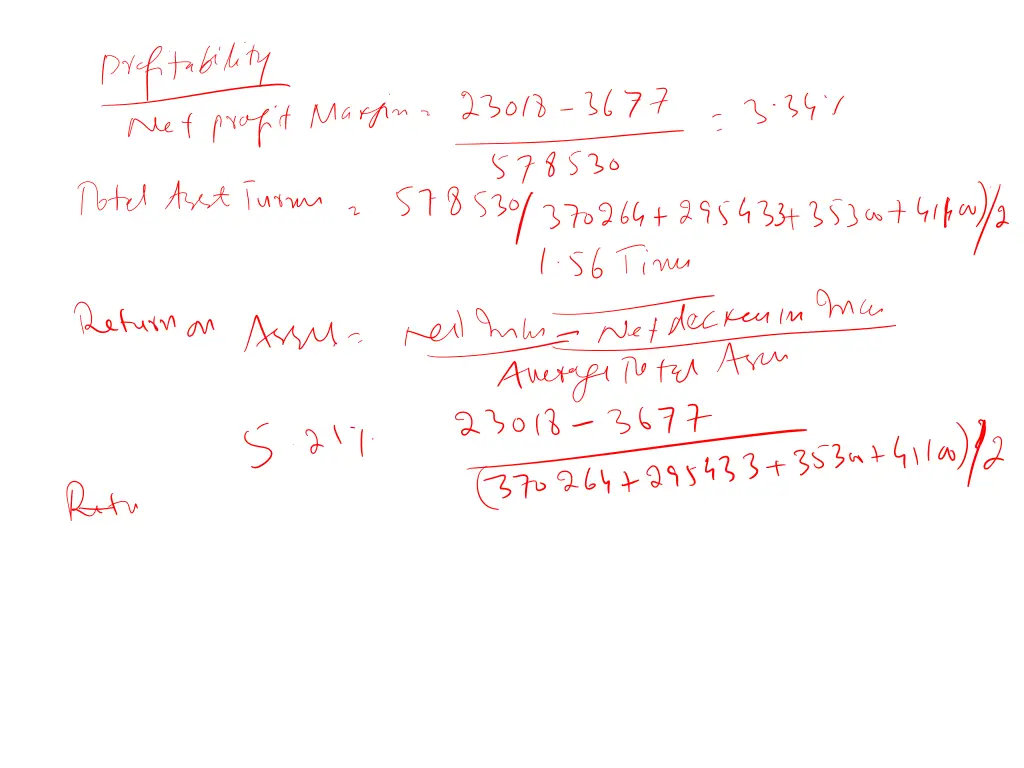 Profitability
Net profit Margin = 23018 - 3677 / 578530 = 3.34%
Total Asset Turn = 578530 / 370264 + 295433 + 35300 + 41100) / 2
1.56 Times
Return on Assets = Net Income - Net decrease in Inca
Average Total Assets
5.21% 23018 - 3677
(370264 + 295433 + 35300 + 41100) / 2
Retu